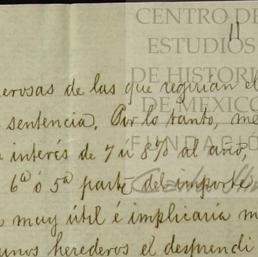 CENTRO DE
ESTUDIOS
DE HISTORI
DE MEXICO
FUNDACIO
11
erosas de las que regirían el
sentencia. Por lo tanto, me
interés de 7 u 8% al año,
6ª ó 5ª parte del importe
muy útil é implicaría m
unos herederos el desprendi